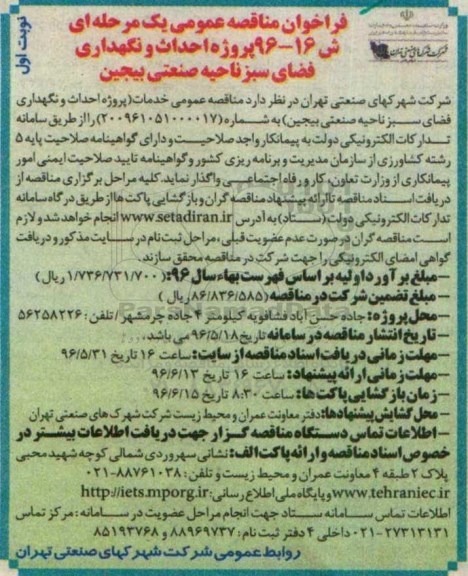 نوبت اول
فراخوان مناقصه عمومی یک مرحله ای
ش ۱۶-۹۶ پروژه احداث و نگهداری
فضای سبز ناحیه صنعتی بیجین
شرکت شهرکهای صنعتی تهران در نظر دارد مناقصه عمومی خدمات (پروژه احداث و نگهداری
فضای سبز ناحیه صنعتی بیجین) به شماره (۲۰۰۹۶۱۰۵۱۰۰۰۰۱۷) را از طریق سامانه
تدارکات الکترونیکی دولت به پیمانکار واجد صلاحیت و دارای گواهینامه صلاحیت پایه ۵
رشته کشاورزی از سازمان مدیریت و برنامه ریزی کشور و گواهینامه تایید صلاحیت ایمنی امور
پیمانکاری از وزارت تعاون، کار و رفاه اجتماعی واگذار نماید. کلیه مراحل برگزاری مناقصه از
دریافت اسناد مناقصه تا ارائه پیشنهاد مناقصه گران و بازگشایی پاکت ها از طریق درگاه سامانه
تدارکات الکترونیکی دولت (ستاد) به آدرس www.setadiran.ir انجام خواهد شد و لازم
است مناقصه گران در صورت عدم عضویت قبلی، مراحل ثبت نام در سایت مذکور و دریافت
گواهی امضای الکترونیکی را جهت شرکت در مناقصه محقق سازند.
–مبلغ برآورد اولیه بر اساس فهرست بهاء سال ۹۶: (۱/۷۳۶/۷۳۱/۷۰۰ ریال)
–مبلغ تضمین شرکت در مناقصه (۸۶/۸۳۶/۵۸۵ ریال)
–محل پروژه: جاده حسن آباد فشافویه کیلومتر ۴ جاده چرمشهر / تلفن: ۵۶۲۵۸۲۲۶
–تاریخ انتشار مناقصه در سامانه تاریخ ۹۶/۵/۱۸ می باشد...
–مهلت زمانی دریافت اسناد مناقصه از سایت: ساعت ۱۶ تاریخ ۹۶/۵/۳۱
–مهلت زمانی ارائه پیشنهاد: ساعت ۱۶ تاریخ ۹۶/۶/۱۳
–زمان بازگشایی پاکت ها: ساعت ۸:۳۰ تاریخ ۹۶/۶/۱۵
–محل گشایش پیشنهادها: دفتر معاونت عمران و محیط زیست شرکت شهرک های صنعتی تهران
–اطلاعات تماس دستگاه مناقصه گزار جهت دریافت اطلاعات بیشتر در
خصوص اسناد مناقصه و ارائه پاکت الف: نشانی سهروردی شمالی کوچه شهید محبی
پلاک ۲ طبقه ۴ معاونت عمران و محیط زیست و تلفن: ۸۸۷۶۱۰۳۸-۰۲۱
www.tehraniec.ir و پایگاه ملی اطلاع رسانی: http://iets.mporg.ir
اطلاعات تماس سامانه ستاد جهت انجام مراحل عضویت در سامانه: مرکز تماس
۲۷۳۱۳۱۳۱-۰۲۱ داخلی ۴ دفتر ثبت نام: ۸۸۹۶۹۷۳۷ و ۸۵۱۹۳۷۶۸
روابط عمومی شرکت شهرکهای صنعتی تهران